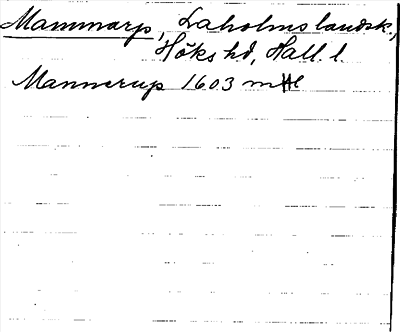 Mammarp, Laholms landsk.,
Höks hd, Hall. l.
Mannerup 1603 mHl